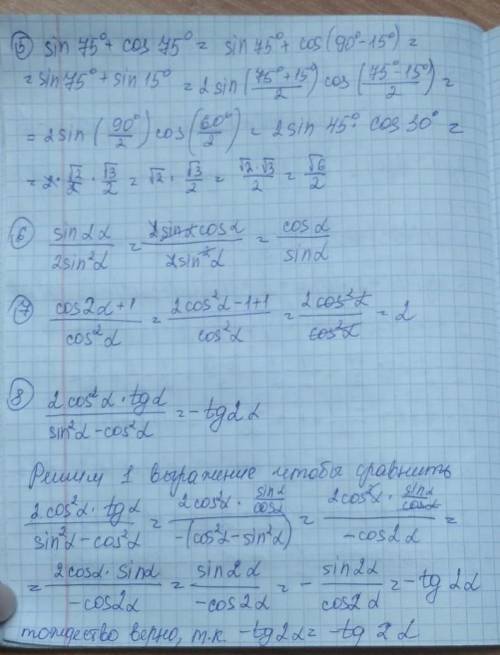 ⑤ sin 75° + cos 75° = sin 75° + cos(90° - 15°) =
= sin 75° + sin 15° = 2 sin (75° + 15°)/2 cos (75° - 15°)/2 =
= 2 sin (90°/2) cos (60°/2) = 2 sin 45° cos 30° =
= 2 · √2/2 · √3/2 = √2 · √3/2 = √2 · √3/2 = √6/2
⑥ sin 2α / 2sin²α = 2 sin α cos α / 2 sin²α = cos α / sin α
⑦ cos 2α + 1 / cos²α = 2cos²α - 1 + 1 / cos²α = 2 cos²α / cos²α = 2
⑧ 2 cos²α · tg α / sin²α - cos²α = - tg 2α
Решим 1 выражение чтобы сравнить
2 cos²α · tg α / sin²α - cos²α = 2 cos²α · sin α/cos α / -(cos²α - sin²α) = 2 cos²α · sin α/cos α / - cos 2α =
= 2 cos α · sin α / - cos 2α = sin 2α / - cos 2α = - sin 2α / cos 2α = - tg 2α
тождество верно, т.к. - tg 2α = - tg 2α